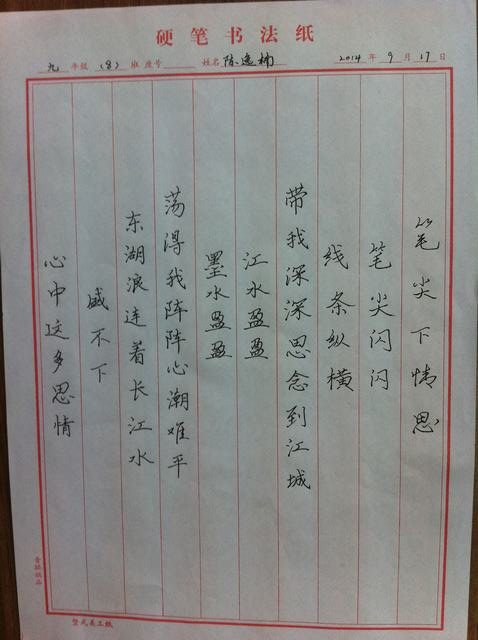 硬笔书法纸
九年级（8）班 座号 姓名 陈逸楠 2014年9月17日
笔尖下情思
笔尖闪闪
线条纵横
带我深深思念到江城
江水盈盈
墨水盈盈
荡得我阵阵心潮难平
东湖浪连着长江水
盛不下
心中这多思情